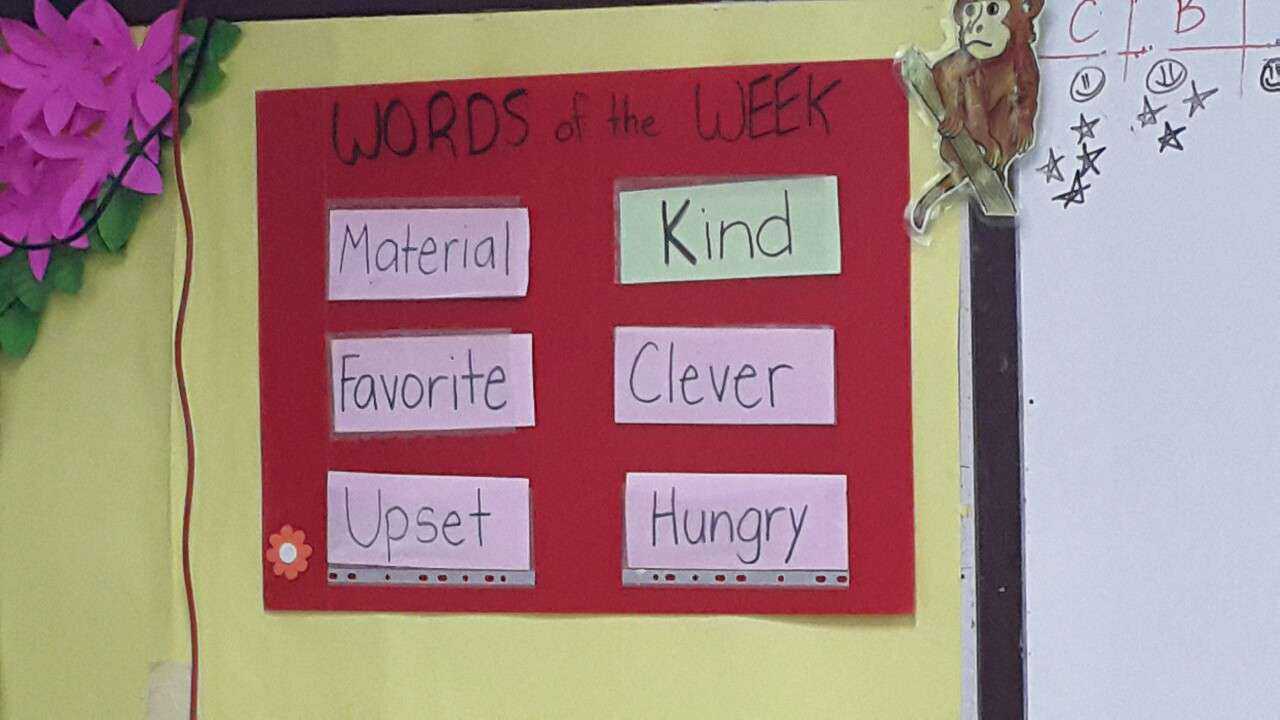 WORDS of the WEEK
Material
Kind
Favorite
Clever
Upset
Hungry
C
B